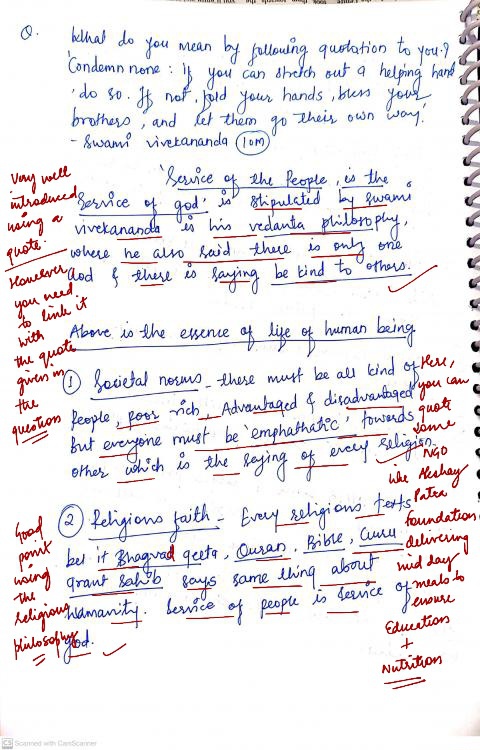 Q. What do you mean by following quotation to you?
'Condemn none: if you can stretch out a helping hand
do so. If not, fold your hands, bless your
brothers, and let them go their own way.'
- Swami vivekananda (10M)
'Service of the People, is the
Service of god' is stipulated by Swami
vivekananda is his vedanta philosophy,
where he also said there is only one
God & there is saying be kind to others.
Very well
introduced
using a
quote.
However
you need
to link it
with
the quote
given in
the
question
Above is the essence of life of human being
① Societal norms - there must be all kind of
people, poor rich, Advantaged & disadvantaged
but everyone must be 'emphathatic' towards
other which is the saying of every religion.
Here,
you can
quote
some
NGO
like Akshay
Patra
foundation
delivering
mid day
meals to
ensure
Education
+
Nutrition
② Religious faith - Every religious texts
be it Bhagvad geeta, Quran, Bible, Guru
grant Sahib says same thing about
Humanity. Service of people is Service of
god.
Good
point
using
the
religious
philosophy
CS Scanned with CamScanner